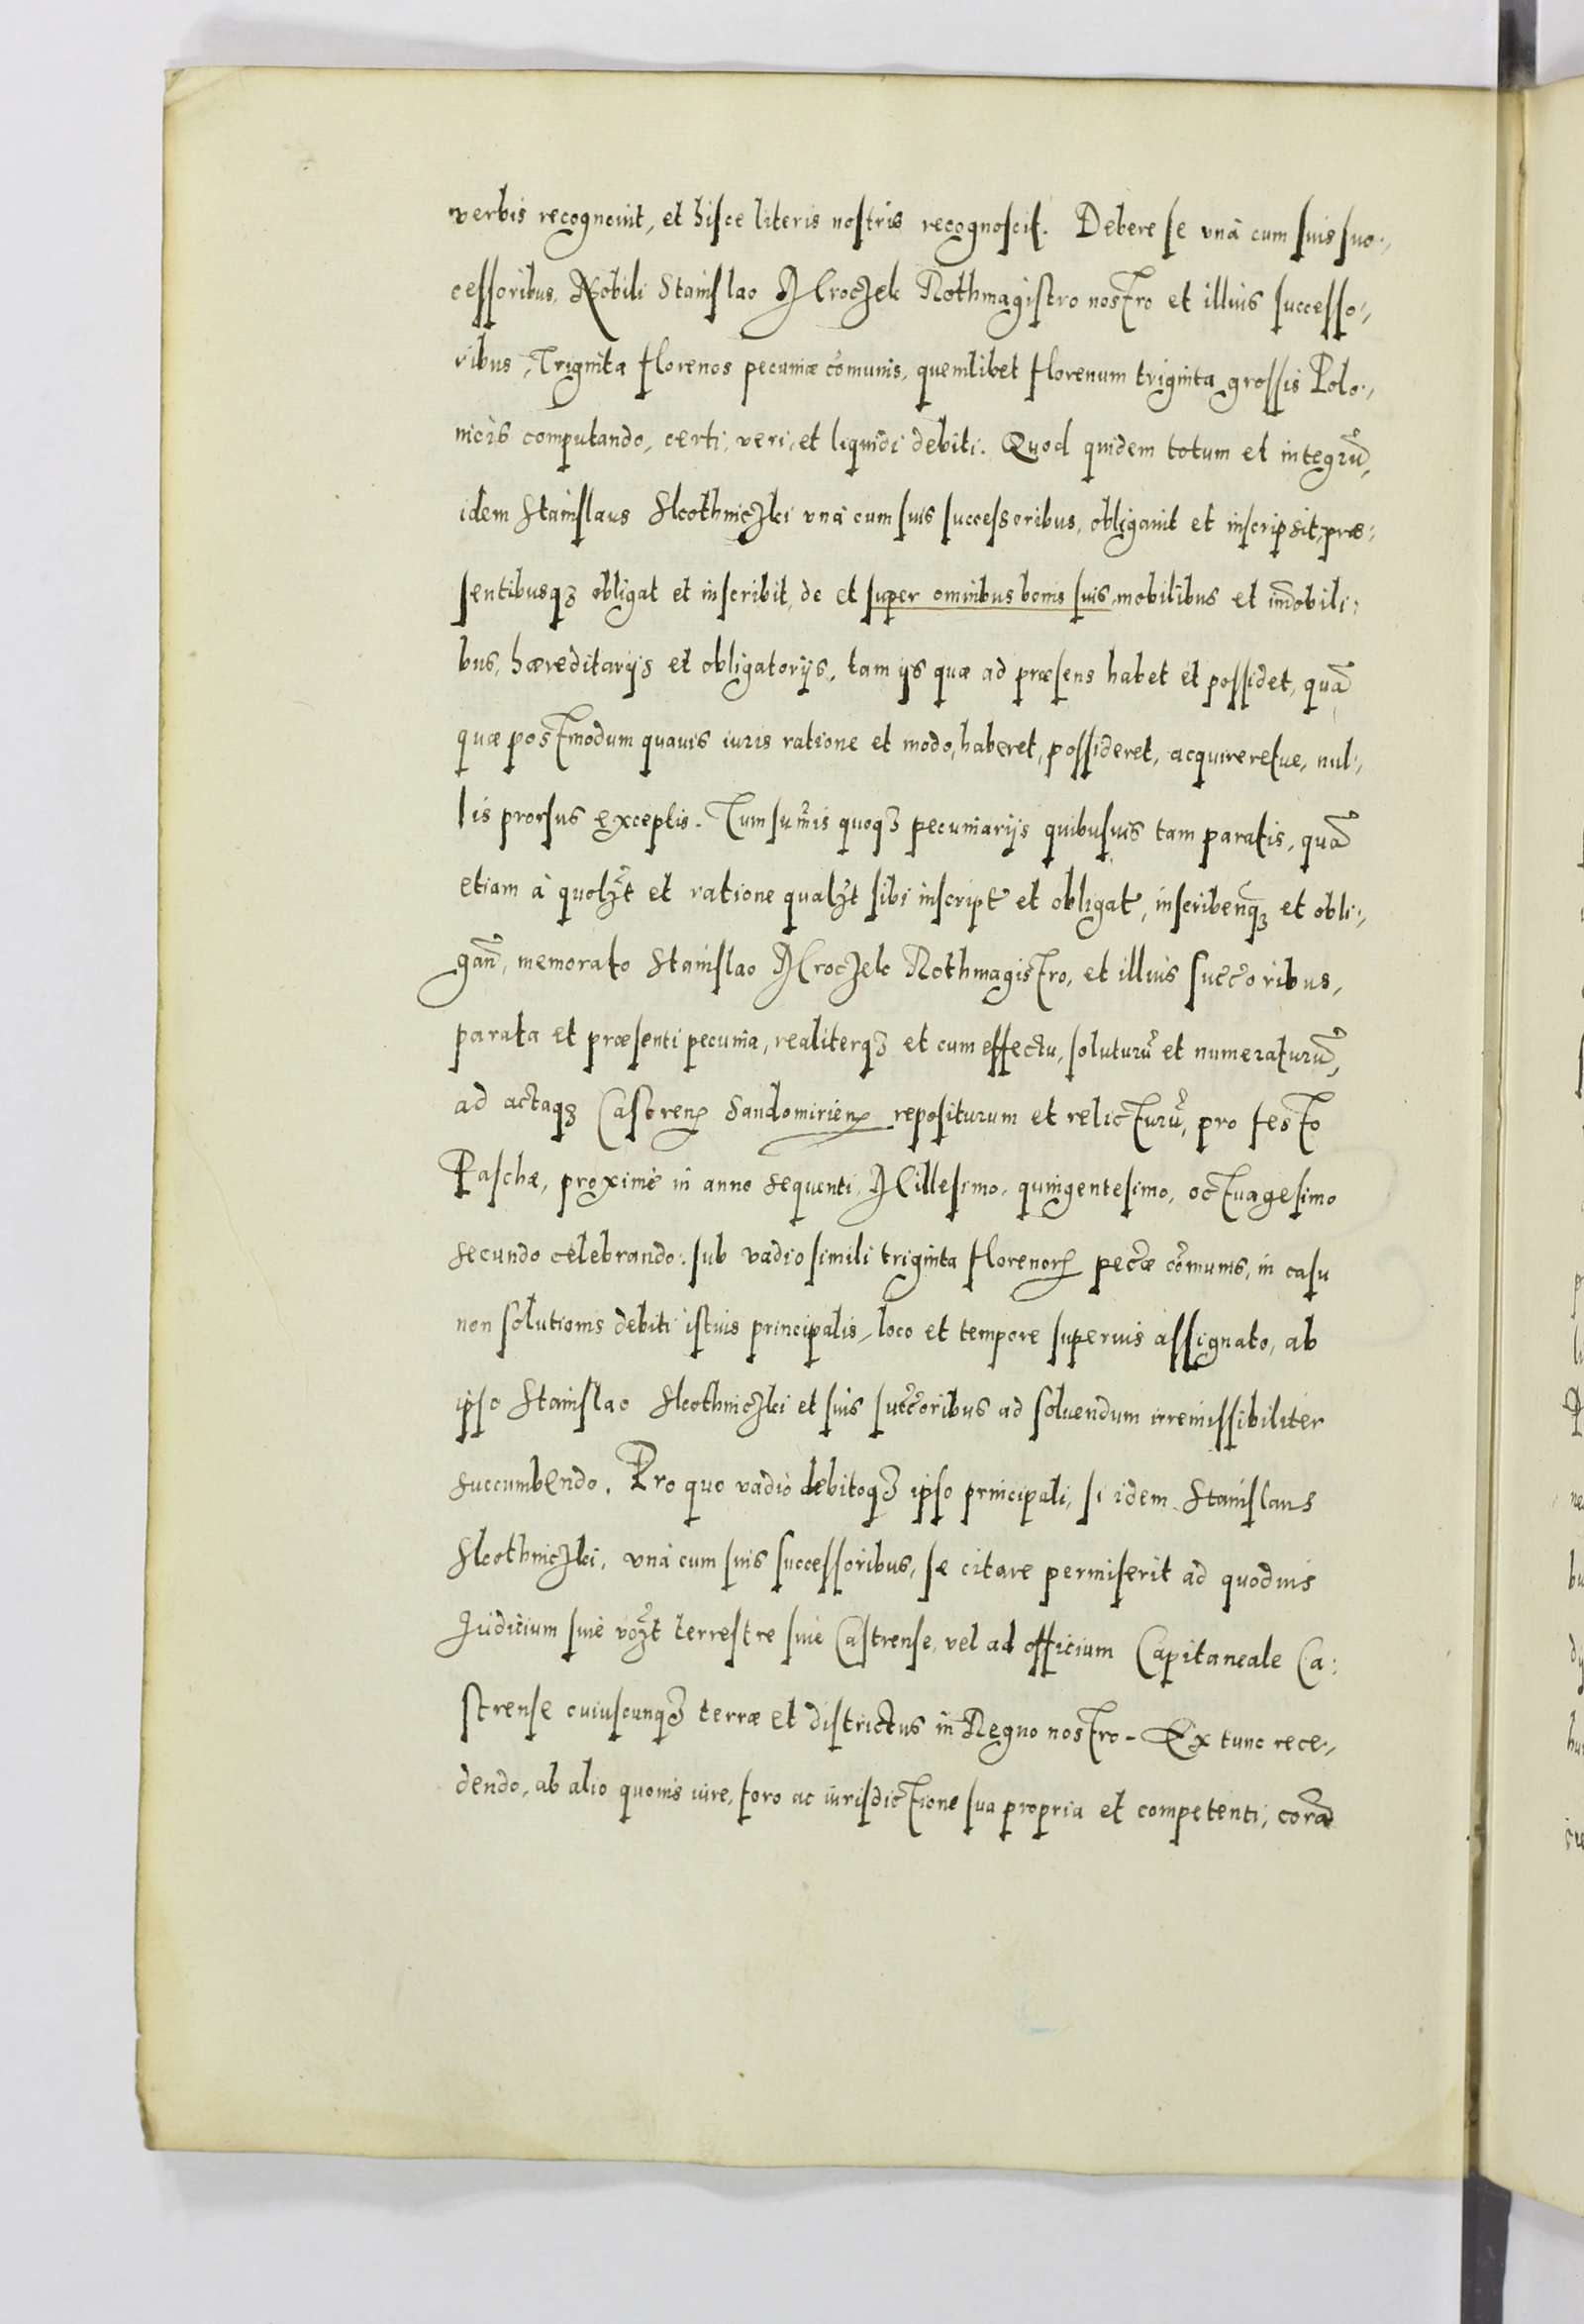 verbis recognouit, et hisce literis nostris recognoscit. Debere se vnà cum suis suc-,
cessoribus, Nobili Stanislao Mroczek Rothmagistro nostro et illius successo-,
ribus, Triginta florenos pecuniæ com̃unis, quemlibet florenum triginta grossis Polo-,
nicis computando, certi, veri, et liquidi debiti. Quod quidem totum et integrũ,
idem Stanislaus Skothniczki vnà cum suis successoribus, obligauit et inscripsit, præ-,
sentibusqȝ obligat et inscribit, de et super omnibus bonis suis, mobilibus et im̃obili-,
bus, hæreditarijs et obligatorijs, tam ijs quæ ad præsens habet et possidet, quã
quæ postmodum quauis iuris ratione et modo, haberet, possideret, acquireretue, nul-,
lis prorsus exceptis. Tum sum̃is quoqȝ pecuniarijs quibusuis tam paratis, quã
etiam à quolȝt et ratione qualȝt sibi inscript̃ et obligat̃, inscribenqȝ et obli-,
gañ, memorato Stanislao Mroczek Rothmagistro, et illius succ̃oribus,
parata et præsenti pecunia, realiterqȝ et cum effectu, soluturũ et numeraturũ,
ad actaqȝ Castreñ Sandomirieñ repositurum et relicturũ, pro festo
Paschæ, proximè in anno sequenti, Millesimo, quingentesimo, octuagesimo
secundo celebrando: sub vadio simili triginta florenorȝ pec̃æ com̃unis, in casu
non solutionis debiti istius principalis, loco et tempore superius assignato, ab
ipso Stanislao Skothniczki et suis succ̃oribus ad soluendum irremissibiliter
succumbendo. Pro quo vadio debitoqȝ ipso principali, si idem Stanislaus
Skothniczki, vnà cum suis successoribus, se citare permiserit ad quoduis
Iudicium siue vȝt terrestre siue Castrense, vel ad officium Capitaneale Ca-
strense cuiuscunqȝ terræ et districtus in Regno nostro. Ex tunc rece-,
dendo, ab alio quouis iure, foro ac iurisdictione sua propria et competenti, corã